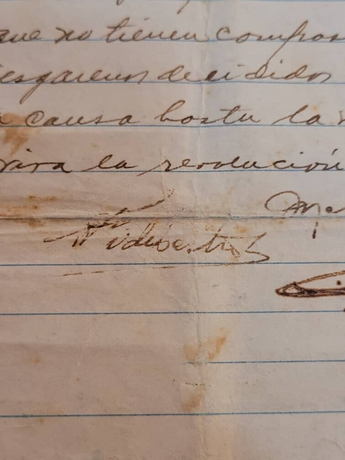 que no tienen compro
esgarenos decididos
causa hasta la
viva la revolución
Ma
Fidel Castro